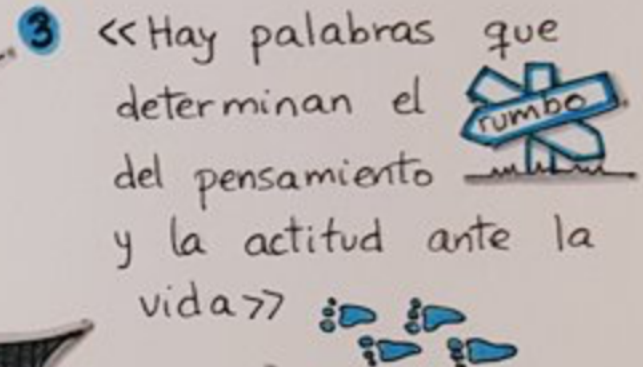 3 <<Hay palabras que
determinan el rumbo
del pensamiento
y la actitud ante la
vida>>